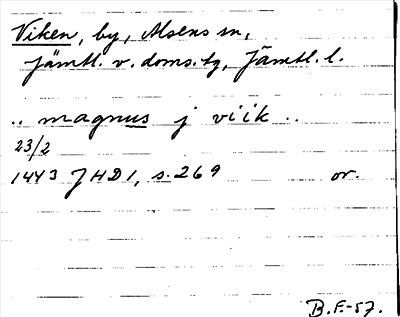 Viken, by, Alsens sn,
Jämtl. v. doms. tg, Jämtl. l.
.. magnus j viik ..
23/2
1443 JHD1, s. 269 or.
B.F.-57.